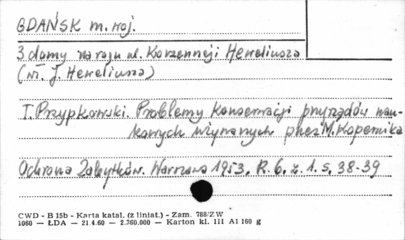 GDAŃSK m. woj.
3 domy na rogu ul. Korzennej i Heweliusza
(m. J. Heweliusza)
T. Przypkowski. Problemy konserwacji przyrządów nau-
kowych używanych przez M. Kopernika
Ochrona Zabytków. Warszawa 1953. R. 6. z. 1. s. 38-39
CWD - B 15b - Karta katal. (z liniat.) - Zam. 788/ZW
1060 — ŁDA — 21.4.60 - 2.760.000 — Karton kl. III A1 160 g